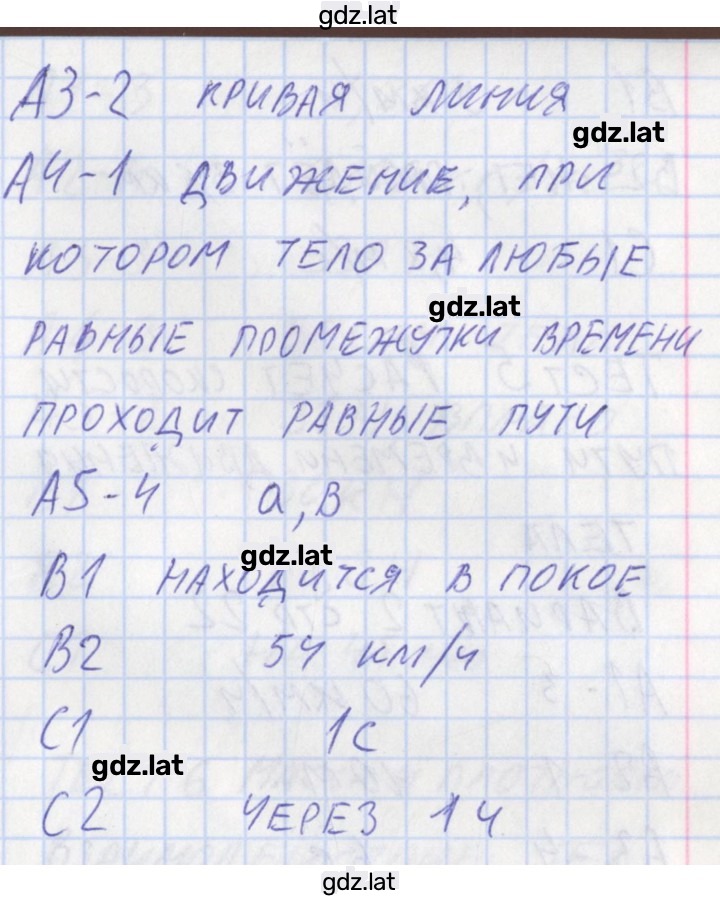 gdz.lat
А3-2 КРИВАЯ ЛИНИЯ
gdz.lat
А4-1 ДВИЖЕНИЕ, ПРИ
КОТОРОМ ТЕЛО ЗА ЛЮБЫЕ
gdz.lat
РАВНЫЕ ПРОМЕЖУТКИ ВРЕМЕНИ
ПРОХОДИТ РАВНЫЕ ПУТИ
А5-4 а, В
gdz.lat
В1 НАХОДИТСЯ В ПОКОЕ
В2 54 КМ/Ч
С1 1С
gdz.lat
С2 ЧЕРЕЗ 1Ч
gdz.lat